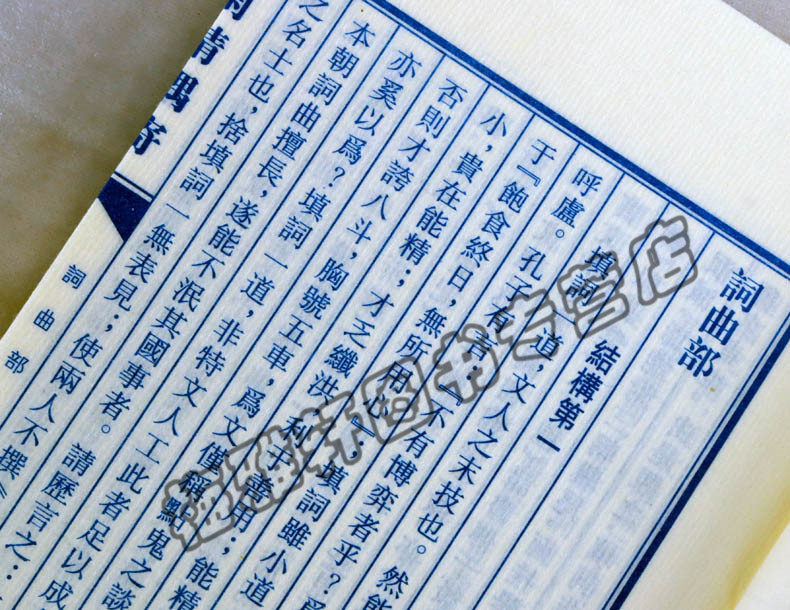 詞曲部
結構第一
填詞一道，文人之末技也。然能
呼盧。孔子有言：『不有博弈者乎？爲
于『飽食終日，無所用心』；填詞雖小道
小，貴在能精；才乏纖洪，利于善用；能精
否則才誇八斗，胸號五車，爲文僅稱點鬼之談
亦奚以爲？填詞一道，非特文人工此者足以成
本朝詞曲擅長，遂能不泯其國事者。請歷言之：
之名士也，捨填詞一無表見；使兩人不撰《
情偶寄
詞曲部
雅轩图书专营店